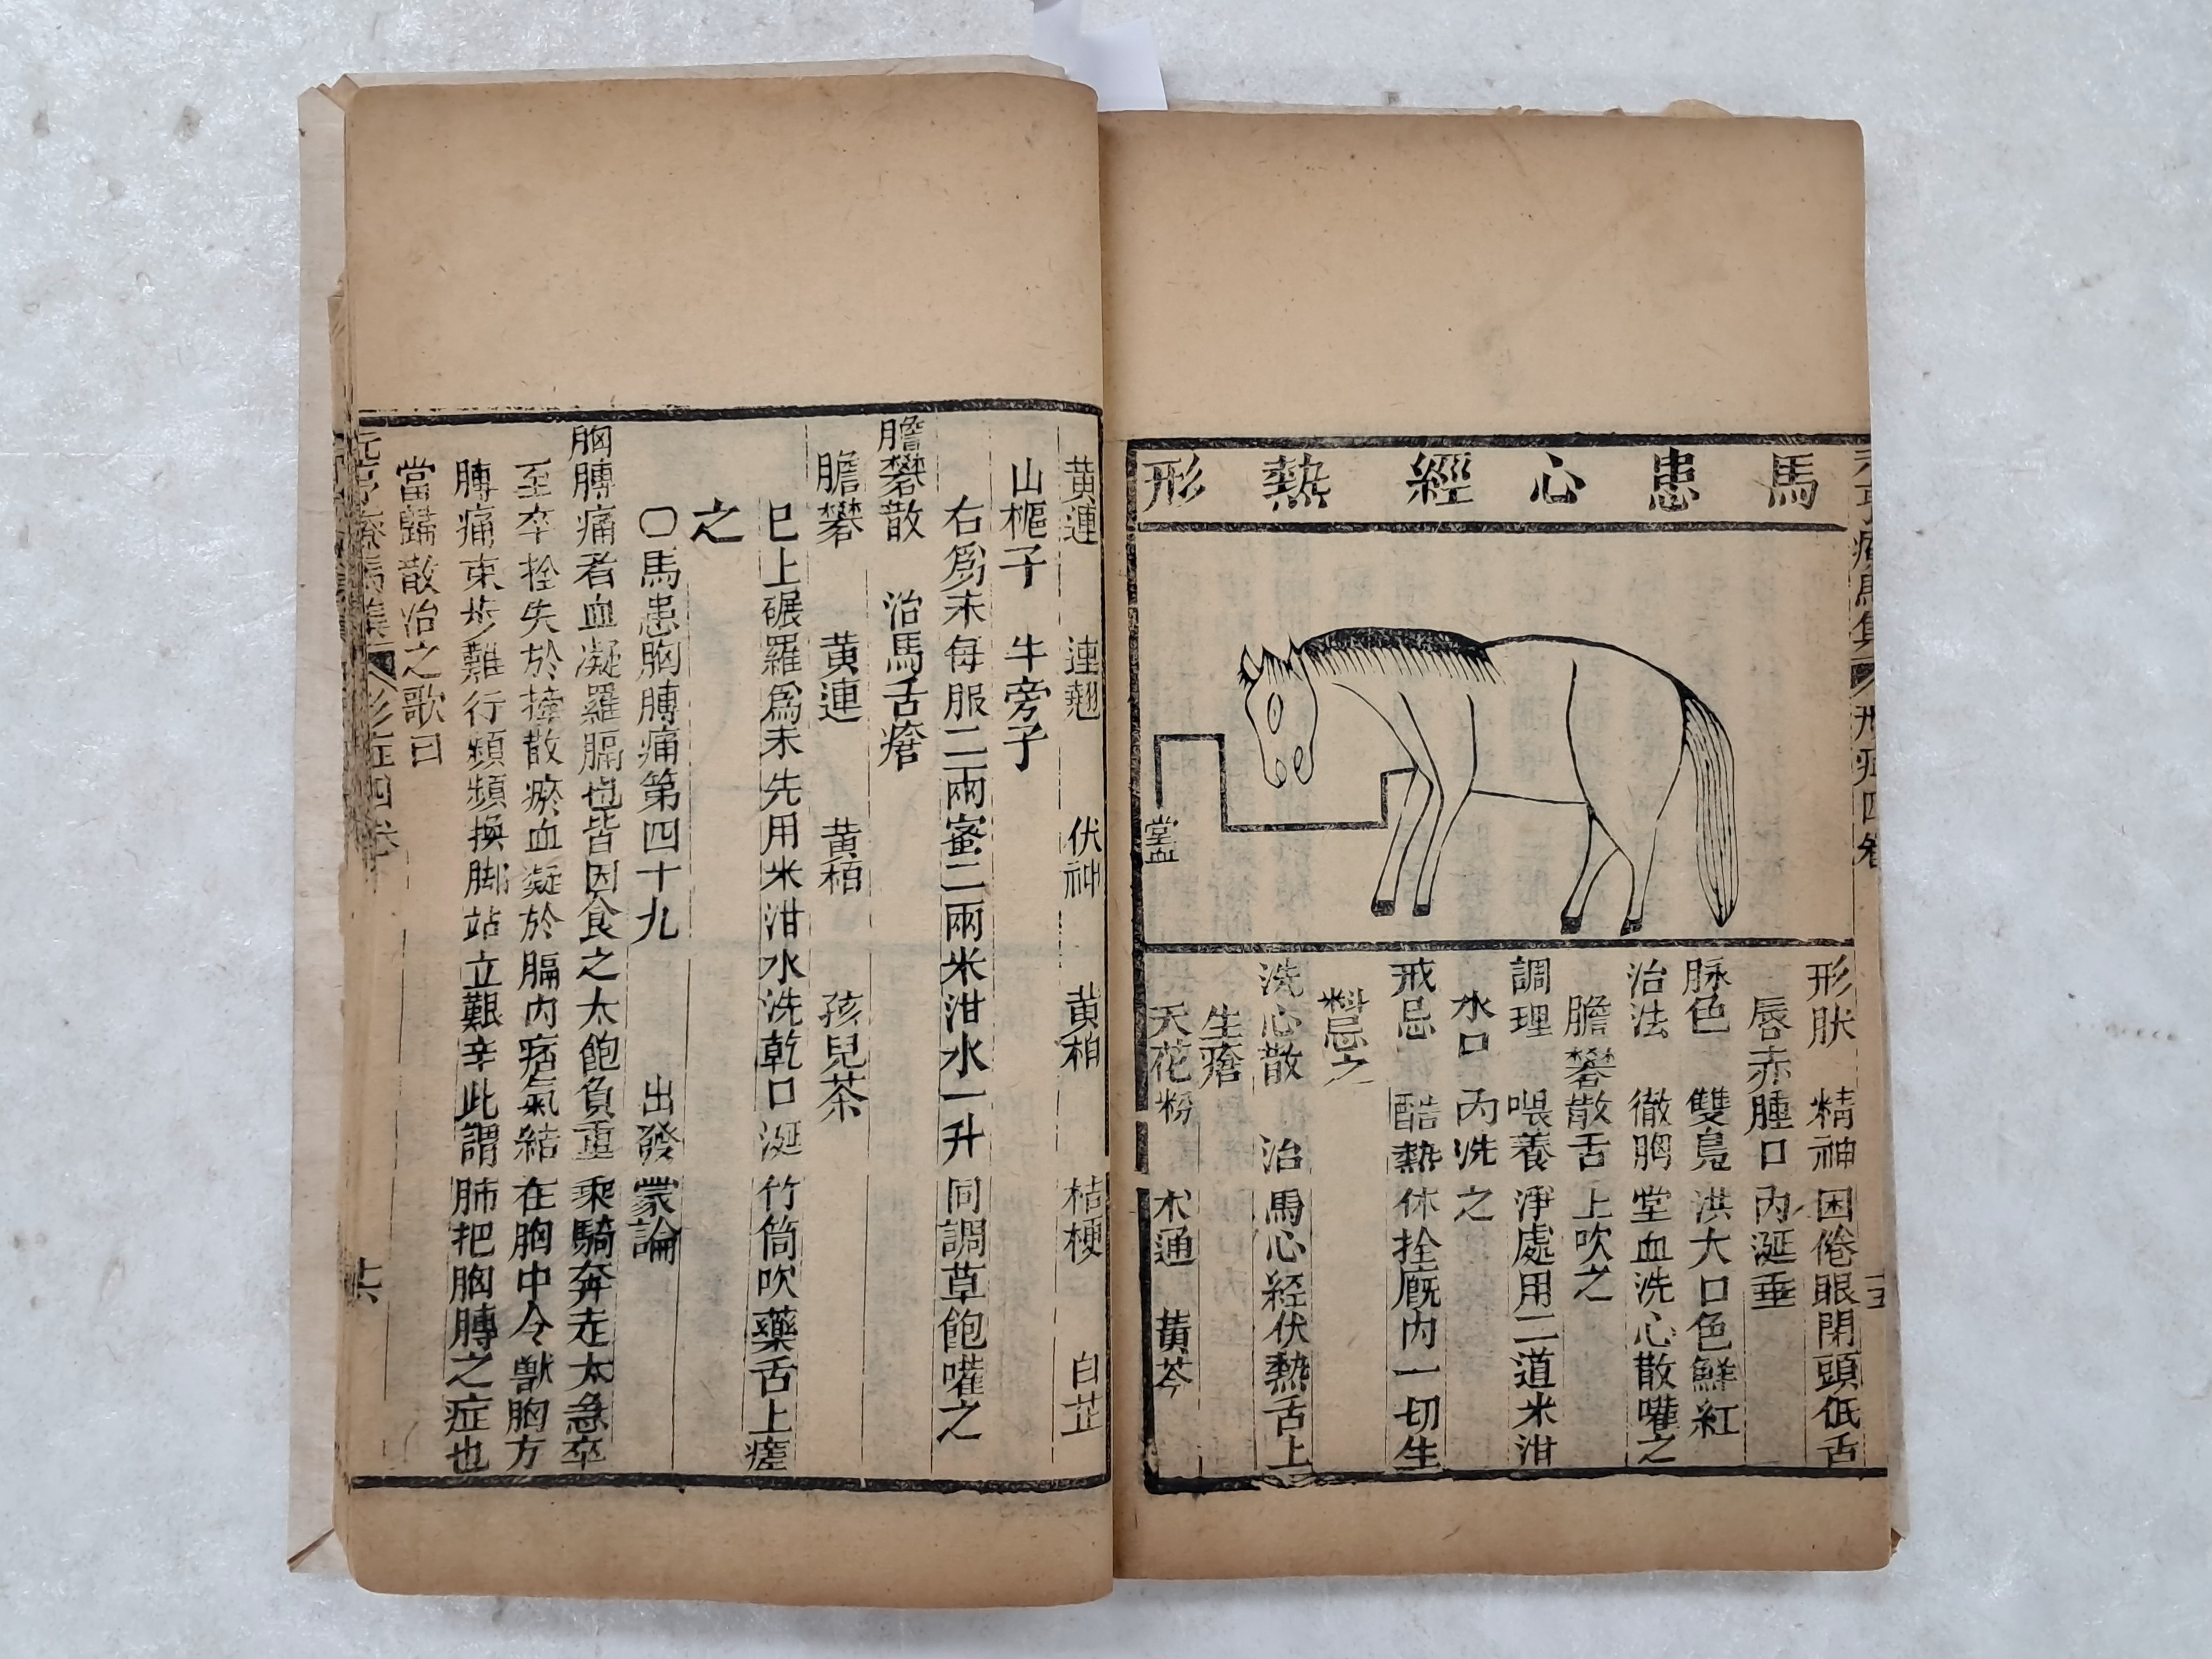 馬患心經熱形
形狀　精神困倦眼閉頭低舌
唇赤腫口內涎垂
脉色　雙鳧洪大口色鮮紅
治法　徹胸堂血洗心散嚾之
膽礬散舌上吹之
調理　喂養淨處用二道米泔
水口內洗之
戒忌　酷熱休拴厩内一切生
料忌之
洗心散　治馬心経伏熱舌上
生瘡
天花粉　木通　黄芩
黄連　連翹　伏神　黄栢　桔梗　白芷
山梔子　牛旁子
右爲末每服二兩蜜二兩米泔水一升同調草飽嚾之
膽礬散　治馬舌瘡
膽礬　黄連　黄栢　孩兒茶
已上碾羅爲末先用米泔水洗乾口涎竹筒吹藥舌上瘥
之
〇馬患胸膊痛第四十九　出發蒙論
胸膊痛者血凝羅膈也皆因食之太飽負重乘騎奔走太急卒
至卒拴失於撁散瘀血凝於膈内痞氣結在胸中令獸胸方
膊痛束步難行頻頻換脚站立艱辛此謂肺把胸膊之症也
當歸散治之歌曰